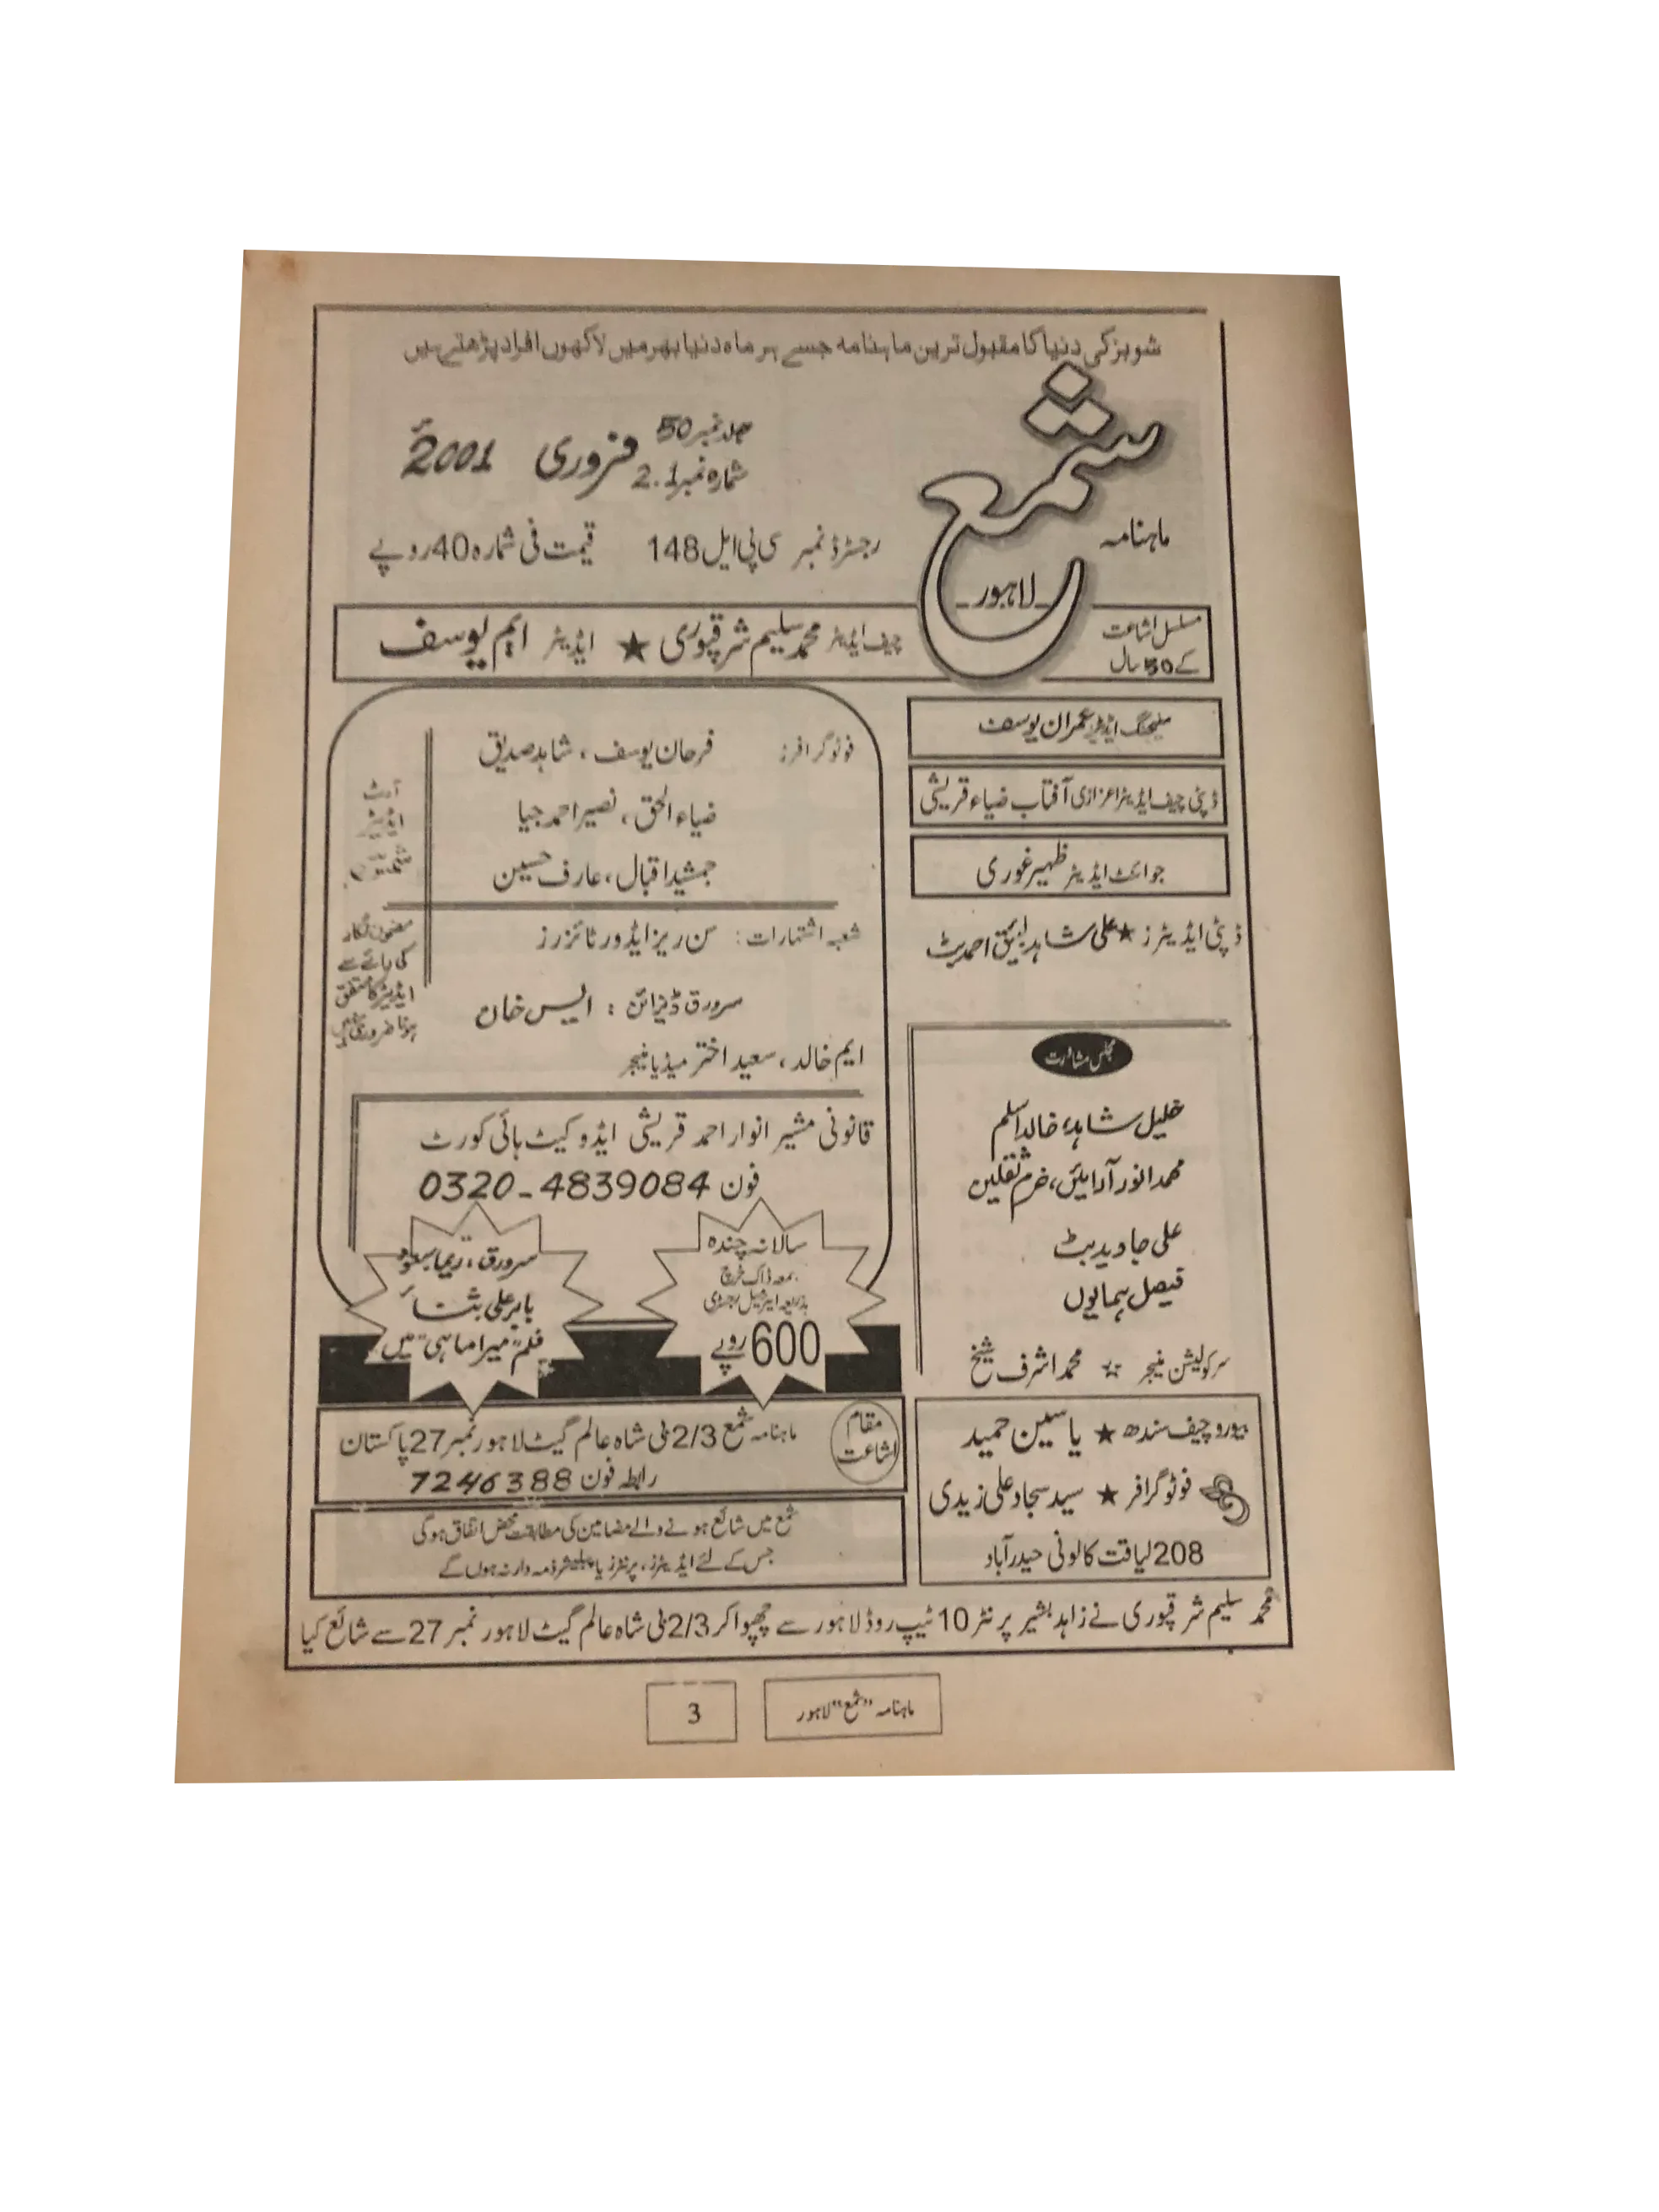 شوبز کی دنیا کا مقبول ترین ماہنامہ جسے ہر ماہ دنیا بھر میں لاکھوں افراد پڑھتے ہیں
ماہنامہ
شمع
لاہور
جلد نمبر 50
شمارہ نمبر 2.1
فروری 2001ء
رجسٹرڈ نمبر سی پی ایل 148 قیمت فی شمارہ 40 روپے
مسلسل اشاعت
کے 50 سال
چیف ایڈیٹر محمد سلیم شرقپوری ★ ایڈیٹر ایم یوسف
منیجنگ ایڈیٹر عمران یوسف
ڈپٹی چیف ایڈیٹر اعزازی آفتاب ضیاء قریشی
جوائنٹ ایڈیٹر ظہیر غوری
ڈپٹی ایڈیٹرز ★ علی شاہد لئیق احمد بٹ
مجلس مشاورت
خلیل شاہد، خالد اسلم
محمد انور آرائیں، خرم ثقلین
علی جاوید بٹ
فیصل ہمایوں
سرکولیشن منیجر ☆ محمد اشرف شیخ
بیورو چیف سندھ ★ یاسین حمید
فوٹو گرافر ★ سید سجاد علی زیدی
208 لیاقت کالونی حیدرآباد
فوٹو گرافر: فرحان یوسف، شاہد صدیق
ضیاء الحق، نصیر احمد جیا
جمشید اقبال، عارف حسین
شعبہ اشتہارات: سن ریز ایڈورٹائزرز
سرورق ڈیزائن: ایس خان
ایم خالد، سعید اختر میڈیا منیجر
آرٹ
ایڈیٹر
مضمون نگار
کی رائے سے
ایڈیٹر کا متفق
ہونا ضروری نہیں
قانونی مشیر انوار احمد قریشی ایڈووکیٹ ہائی کورٹ
فون 0320-4839084
سالانہ چندہ
بمعہ ڈاک خرچ
بذریعہ ایئر میل رجسٹری
600 روپے
سرورق، ریما، سعود
بابر علی، ثناء
فلم "میرا ماہی" میں
مقام
اشاعت
ماہنامہ شمع 2/3 بی شاہ عالم گیٹ لاہور نمبر 27 پاکستان
رابطہ فون 7246388
شمع میں شائع ہونے والے مضامین کی مطابقت محض اتفاق ہوگی
جس کے لئے ایڈیٹرز، پرنٹرز یا پبلیشر ذمہ دار نہ ہوں گے
محمد سلیم شرقپوری نے زاہد بشیر پرنٹر 10 ٹیپ روڈ لاہور سے چھپوا کر 2/3 بی شاہ عالم گیٹ لاہور نمبر 27 سے شائع کیا
ماہنامہ "شمع" لاہور
3